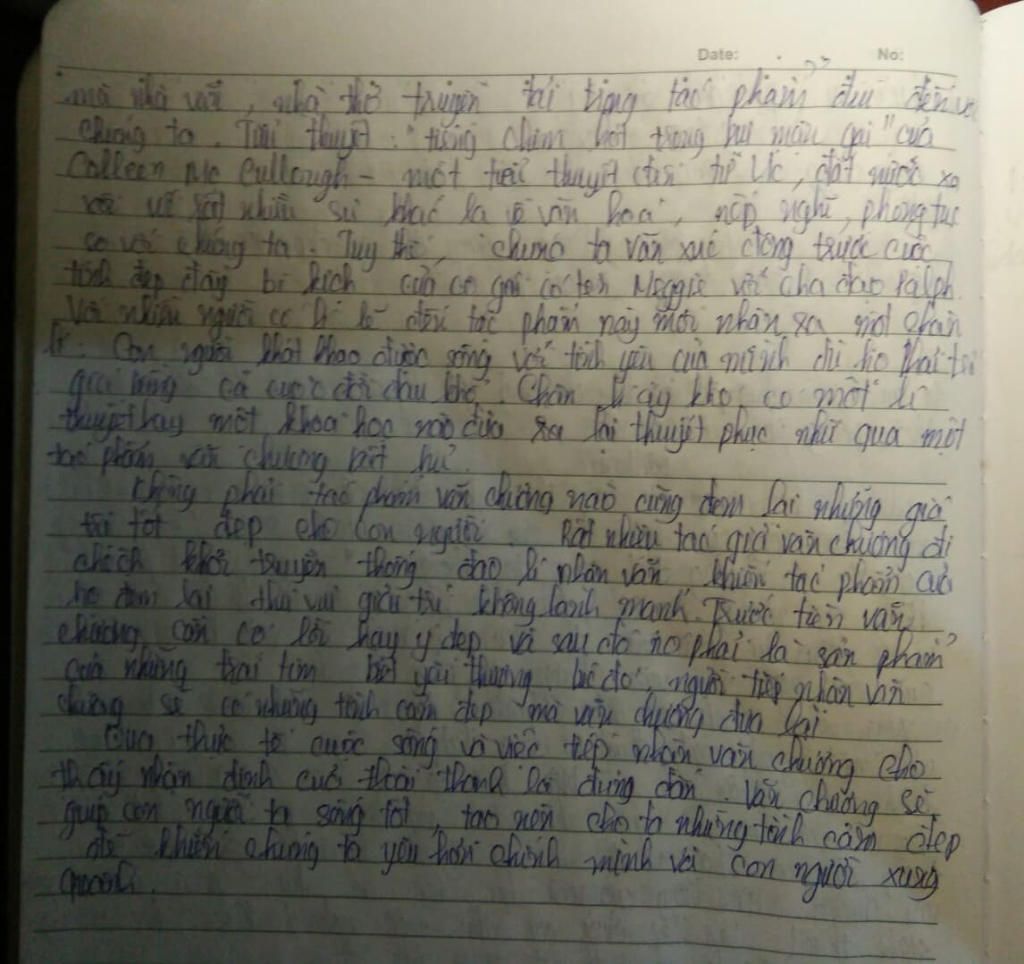 Date: No:
mà nhà văn, nhà thơ truyền tải trong tác phẩm đều đến với
chúng ta. Tiểu thuyết: "tiếng chim hót trong bụi mận gai" của
Colleen Mc Cullough - một tiểu thuyết đến từ Úc, đất nước xa
xôi về rất nhiều sự khác lạ về văn hóa, nếp nghĩ, phong tục
so với chúng ta. Tuy thế, chúng ta vẫn xúc động trước cuộc
tình đẹp đầy bi kịch của cô gái có tên Meggie với cha đạo Ralph.
Với nhiều người có lẽ đến tác phẩm này mới nhận ra một chân
lí. Con người khát khao được sống với tình yêu của mình dù họ phải trả
giá bằng cả cuộc đời đau khổ. Chân lí ấy khó có một lí
thuyết hay một khoa học nào đưa ra lại thuyết phục như qua một
tác phẩm văn chương bất hủ.
Không phải tác phẩm văn chương nào cũng đem lại những giá
trị tốt đẹp cho con người. Rất nhiều tác giả văn chương đi
chệch khỏi truyền thống đạo lí nhân văn khiến tác phẩm của
họ đem lại thú vui giải trí không lành mạnh. Trước tiên văn
chương cần có lời hay ý đẹp và sau đó nó phải là sản phẩm
của những trái tim biết yêu thương. Từ đó, người tiếp nhận văn
chương sẽ có những tình cảm đẹp mà văn chương đưa lại
Qua thực tế cuộc sống và việc tiếp nhận văn chương cho
thấy nhận định của Hoài Thanh là đúng đắn. Văn chương sẽ
giúp con người ta sống tốt, tạo nên cho ta những tình cảm đẹp
để khiến chúng ta yêu hơn chính mình và con người xung
quanh.